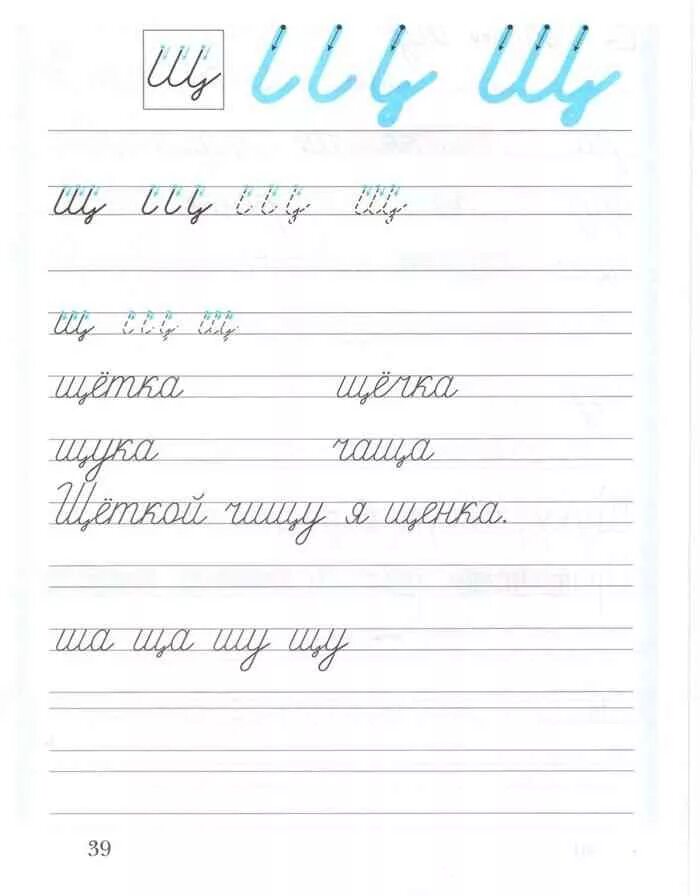 Щ Щ
Щ Щ Щ
щ щ щ
щётка щёчка
щука чаща
Щёткой чищу я щенка.
ша ща шу щу
39